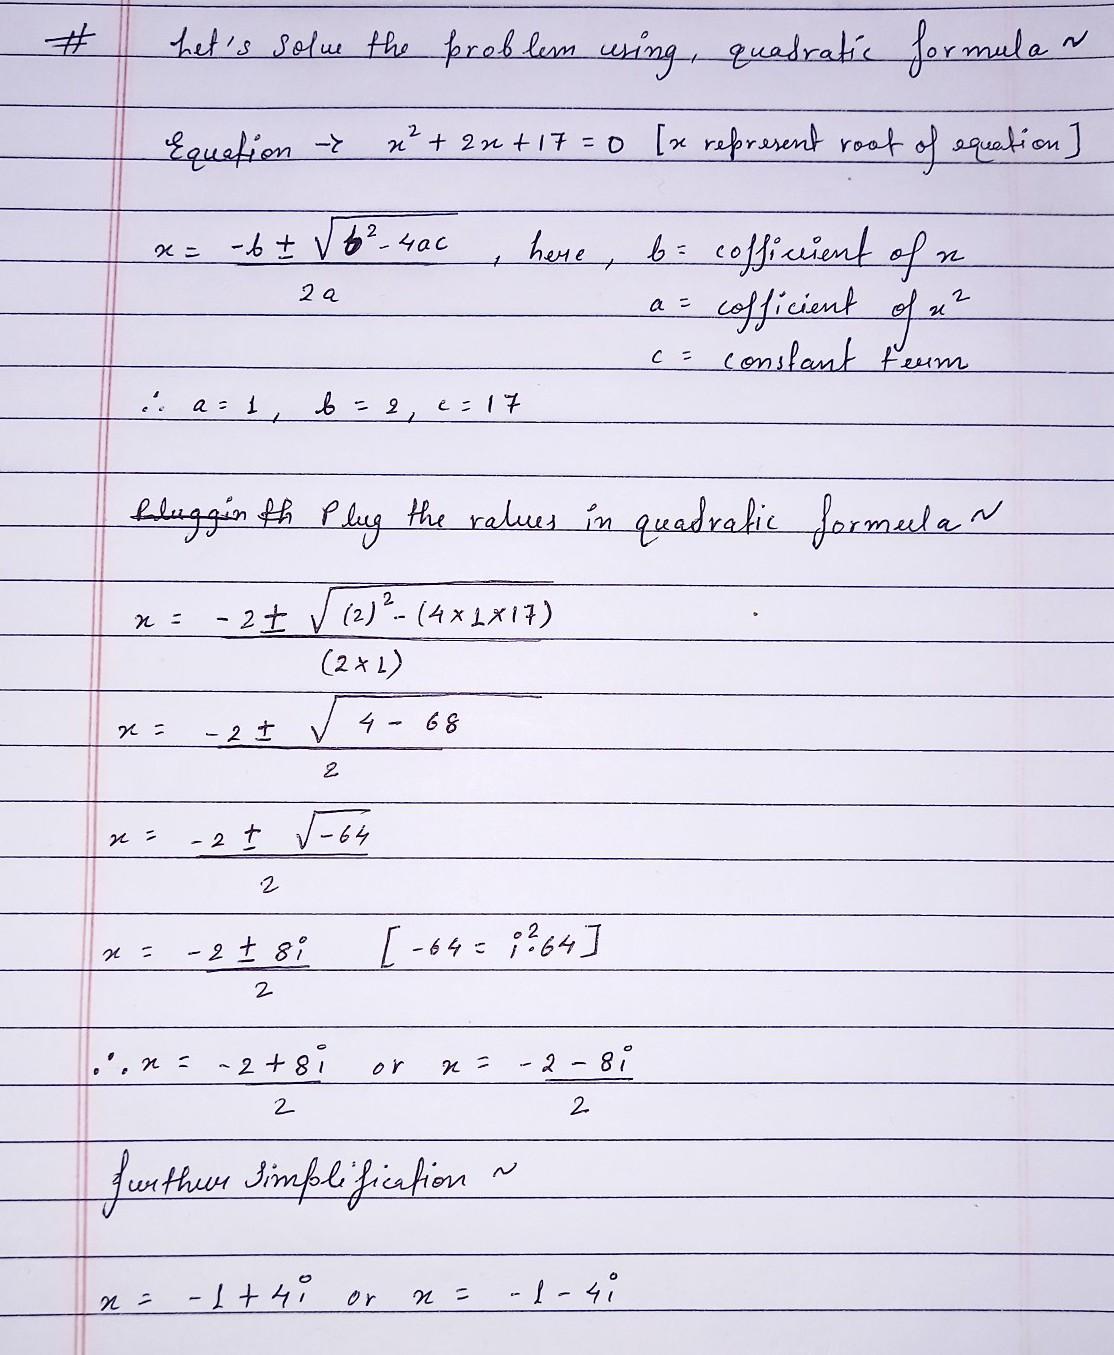 # Let's solve the problem using, quadratic formula ~
Equation → x² + 2x + 17 = 0 [x represent root of equation]
x = -b ± √b² - 4ac / 2a , here, b = cofficient of x
a = cofficient of x²
c = constant term
∴ a = 1, b = 2, c = 17
Pluggin th Plug the values in quadratic formula ~
x = -2 ± √(2)² - (4×1×17) / (2×1)
x = -2 ± √4 - 68 / 2
x = -2 ± √-64 / 2
x = -2 ± 8i / 2 [-64 = i²·64]
∴ x = -2 + 8i / 2 or x = -2 - 8i / 2
further simplification ~
x = -1 + 4i or x = -1 - 4i